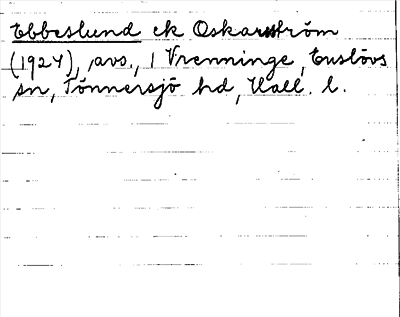 Ebbeslund ek Oskarström
(1924), avs., 1 Vrenninge, Enslövs
sn, Tönnersjö hd, Hall. l.